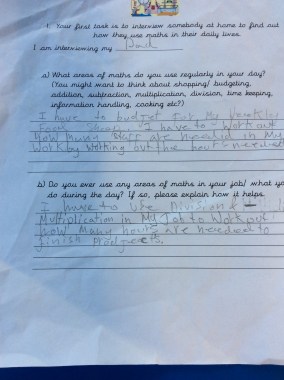 1. Your first task is to interview somebody at home to find out
how they use maths in their daily lives.
I am interviewing my Dad
a) What areas of maths do you use regularly in your day?
(You might want to think about shopping/ budgeting,
addition, subtraction, multiplication, division, time keeping,
information handling, cooking etc?)
I have to budget for my weekly
Food Shop. I have to work out
How many staff are needed in my
work by working out the hours needed
b) Do you ever use any areas of maths in your job/ what yo
do during the day? If so, please explain how it helps.
I have to use Division &
Multiplication in My Job to work out
how Many hours are needed to
finish products.